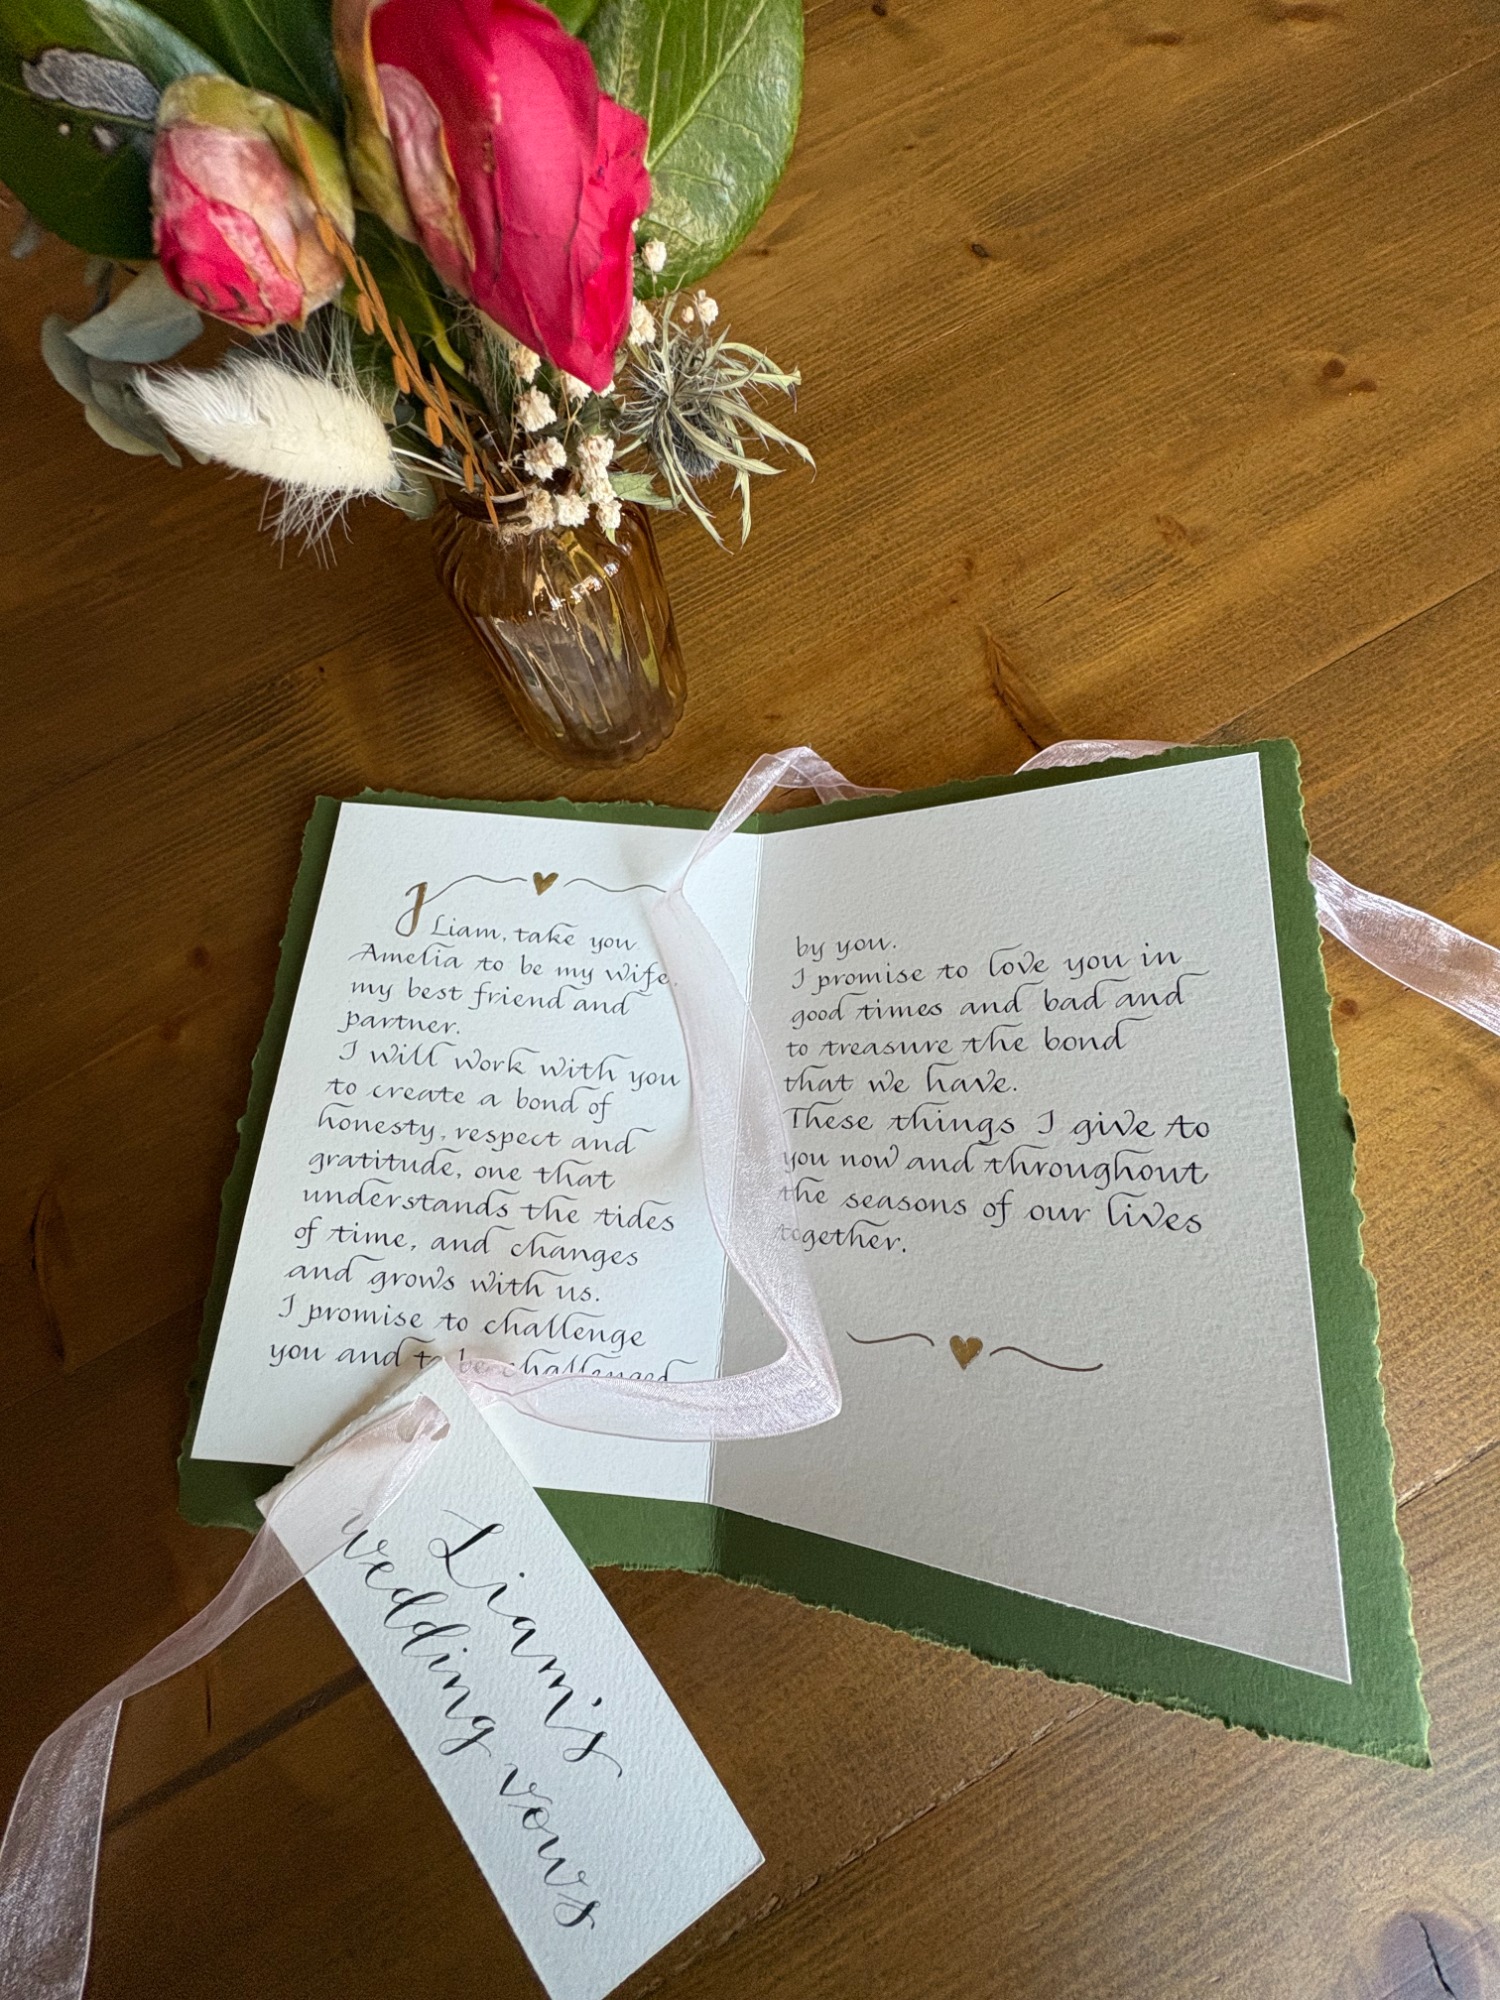 I Liam, take you
Amelia to be my wife,
my best friend and
partner.
I will work with you
to create a bond of
honesty, respect and
gratitude, one that
understands the tides
of time, and changes
and grows with us.
I promise to challenge
you and to be challenged
by you.
I promise to love you in
good times and bad and
to treasure the bond
that we have.
These things I give to
you now and throughout
the seasons of our lives
together.
Liam's
wedding vows